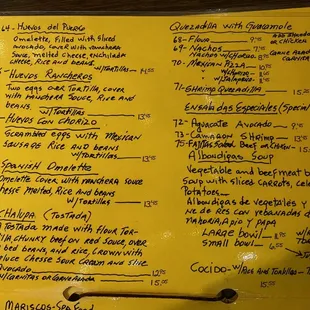 64- Huevos del Puerto
Omalette, filled with sliced
avocado, cover with ranchera
sauce, melted cheese, enchilada
cheese, Rice and beans.
w/Tortillas
Huevos Rancheros
Two eggs over tortilla, cover
with ranchera sauce, Rice and
beans.
w/Tortillas 13.95
Huevos con Chorizo
Scrambled eggs with Mexican
sausage Rice and beans
w/Tortillas 13.95
Spanish Omelette
Omelette cover with ranchera sauce
cheese melted, Rice and beans
w/Tortillas 13.95
Chalupa (Tostada)
Tostada made with flour Tor-
illa chunky beef on Red sauce, over
beans, Rice, crown with
cheese sour cream and slice
avocado 12.95
w/Carnitas or Carne Asada 15.00
Mariscos-Sea Food
Quezadilla with Guacamole
68- Flour
69- Nachos
70- Mexican Pizza
w/Jalapeño
71- Shrimp Quezadilla 15.
Ensaladas Especiales (Special
72- Aguacate Avocado 9.
73- Camaron Shrimp 13.
75- Fajitas Salad Beef or Chicken 15.
Albondigas Soup
Vegetable and beef meat b
Soup with sliced carrots, cel
Potatoes
Albondigas de vegetales y
ne de res con rebanadas de
apio y papa
Large bowl
Small bowl
Cocido- w/Rice and Tortillas
15.00